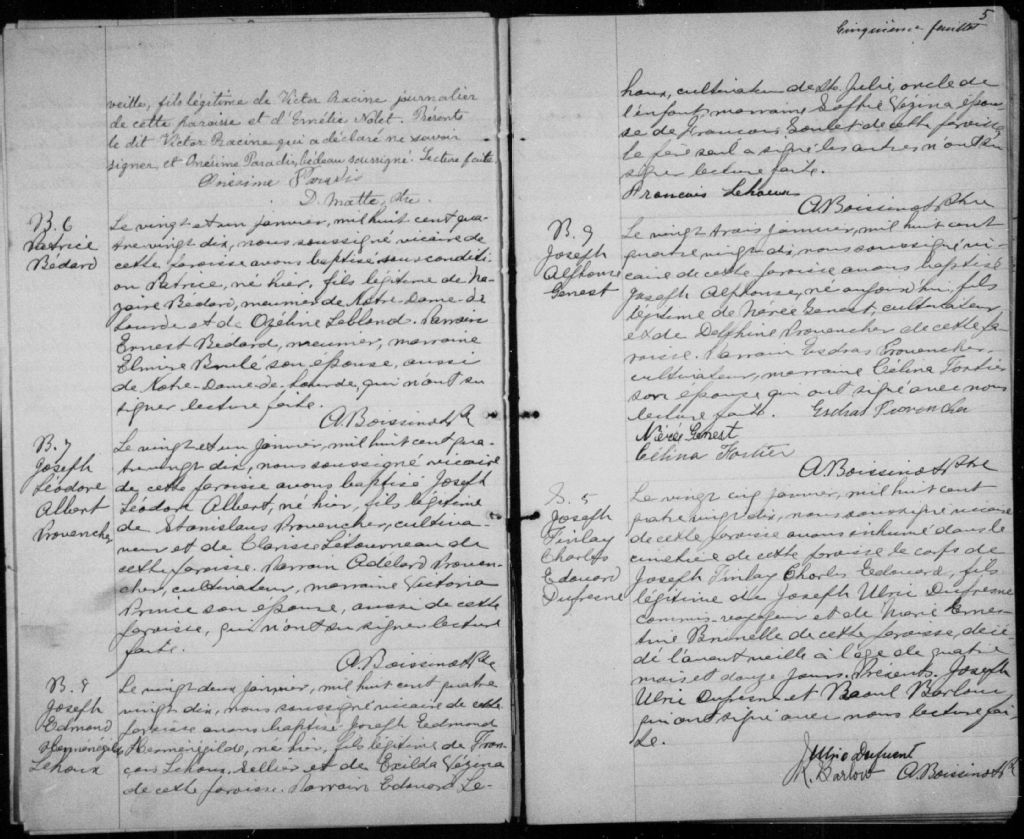 veille, fils légitime de Victor Racine journalier
de cette paroisse et d'Emélie Nolet. Présents
le dit Victor Racine qui a déclaré ne savoir
signer, et Onésime Paradis, bédeau soussigné. Lecture faite.
Onésime Paradis
D. Matte, Ptre.
B. 6
Patrice
Bédard
Le vingt et un janvier, mil huit cent qua-
tre vingt dix, nous soussigné vicaire de
cette paroisse avons baptisé sous conditi-
on Patrice, né hier, fils légitime de Na-
zaire Bédard, meunier de Notre-Dame-de
Lourde et de Ozéline Leblond. Parrain
Ernest Bedard, meunier, marraine
Elmire Brulé son épouse, aussi
de Notre-Dame-de-Lourde, qui n'ont su
signer lecture faite.
A. Boissinot Ptre
B. 7
Joseph
Léodore
Albert
Provencher
Le vingt et un janvier, mil huit cent qua-
tre vingt dix, nous soussigné vicaire
de cette paroisse avons baptisé Joseph
Léodore Albert, né hier, fils légitime
de Stanislaus Provencher, cultiva-
teur et de Clarisse Létourneau de
cette paroisse. Parrain Adélard Proven-
cher, cultivateur, marraine Victoria
Prince son épouse, aussi de cette
paroisse, qui n'ont su signer lecture
faite.
A. Boissinot Ptre
B. 8
Joseph
Edmond
Herménégilde
Lehoux
Le vingt deux janvier, mil huit cent quatre
vingt dix, nous soussigné vicaire de cette
paroisse avons baptisé Joseph Edmond
Herménégilde, né hier, fils légitime de Fran-
çois Lehoux, sellier et de Exilda Vézina
de cette paroisse. Parrain Edouard Le-
5
Cinquième feuillet
houx, cultivateur de Ste Julie, oncle de
l'enfant, marraine Sophie Vézina épou-
se de Francois Goulet de cette paroisse,
le père seul a signé les autres n'ont su
signer lecture faite.
Francois Lehoux
A. Boissinot Ptre
B. 9
Joseph
Alphonse
Genest
Le vingt trois janvier, mil huit cent
quatre vingt dix, nous soussigné vi-
caire de cette paroisse avons baptisé
Joseph Alphonse, né aujourd'hui, fils
légitime de Nérée Genest, cultivateur
et de Delphine Provencher de cette pa-
roisse. Parrain Esdras Provencher,
cultivateur, marraine Célina Fortier
son épouse qui ont signé avec nous
lecture faite. Esdras Provencher
Nérée Genest
Célina Fortier
A. Boissinot Ptre
S. 5
Joseph
Finlay
Charles
Edouard
Dufresne
Le vingt cinq janvier, mil huit cent
quatre vingt dix, nous soussigné vicaire
de cette paroisse avons inhumé dans le
cimetière de cette paroisse le corps de
Joseph Finlay Charles Edouard, fils
légitime de Joseph Ulric Dufresne
commis-voyageur et de Marie Ernes-
tine Brunelle de cette paroisse, décé-
dé l'avant veille à l'âge de quatre
mois et douze jours. Présents Joseph
Ulric Dufresne et Raoul Barlow,
qui ont signé avec nous lecture fai-
te.
J Ulric Dufresne
R. Barlow A. Boissinot Ptre